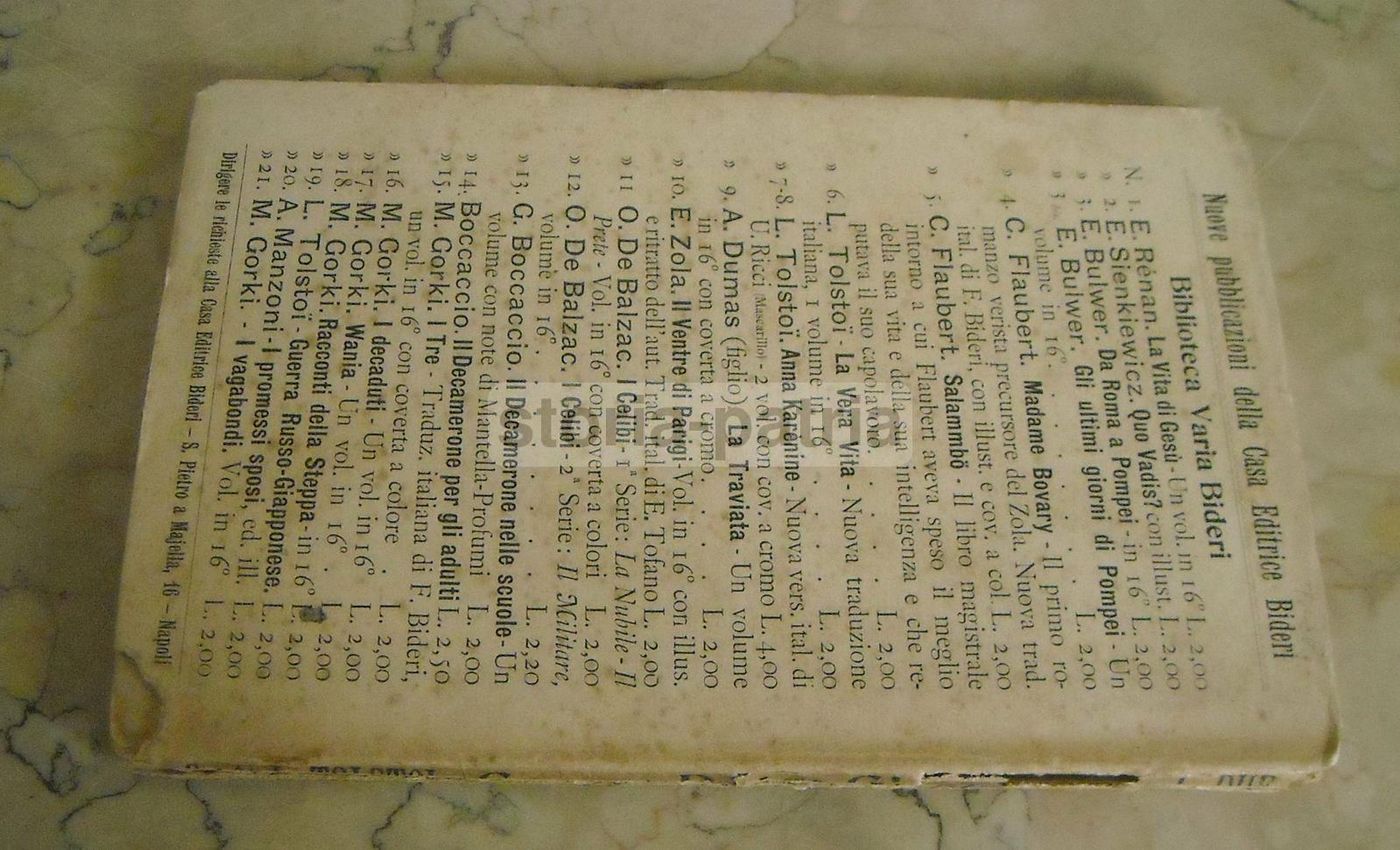 Nuove pubblicazioni della Casa Editrice Bideri
Biblioteca Varia Bideri
N. 1. E. Rénan. La Vita di Gesù - Un vol. in 16° L. 2,00
» 2. E. Sienkiewicz. Quo Vadis? con illust. L. 2,00
» 3. E. Bulwer. Da Roma a Pompei - in 16° L. 2,00
» 3 E. Bulwer. Gli ultimi giorni di Pompei - Un
volume in 16° . . . . . L. 2,00
» 4. C. Flaubert. Madame Bovary - Il primo ro-
manzo verista precursore del Zola. Nuova trad.
ital. di F. Bideri, con illust. e cov. a col. L. 2,00
» 5. C. Flaubert. Salammbô - Il libro magistrale
intorno a cui Flaubert aveva speso il meglio
della sua vita e della sua intelligenza e che re-
putava il suo capolavoro. . . . L. 2,00
» 6. L. Tolstoï - La Vera Vita - Nuova traduzione
italiana, 1 volume in 16° . . . L. 2,00
» 7-8. L. Tolstoï. Anna Karenine - Nuova vers. ital. di
U. Ricci (Mascarillo) - 2 vol. con cov. a cromo L. 4,00
» 9. A. Dumas (figlio) La Traviata - Un volume
in 16° con coverta a cromo. . . . L. 2,00
» 10. E. Zola. Il Ventre di Parigi - Vol. in 16° con illus.
e ritratto dell'aut. Trad. ital. di E. Tofano L. 2,00
» 11 O. De Balzac. I Celibi - 1ª Serie: La Nubile - Il
Prete - Vol. in 16° con coverta a colori L. 2,00
» 12. O. De Balzac. I Celibi - 2ª Serie: Il Militare,
volume in 16° . . . . . L. 2,20
» 13. G. Boccaccio. Il Decamerone nelle scuole - Un
volume con note di Mantella-Profumi L. 2,00
» 14. Boccaccio. Il Decamerone per gli adulti L. 2,50
» 15. M. Gorki. I Tre - Traduz. italiana di F. Bideri,
un vol. in 16° con coverta a colore . L. 2,00
» 16. M. Gorki. I decaduti - Un vol. in 16° L. 2,00
» 17. M. Gorki. Wania - Un vol. in 16° . L. 2,00
» 18. M. Gorki. Racconti della Steppa - in 16° 2,00
» 19. L. Tolstoï - Guerra Russo-Giapponese. L. 2,00
» 20. A. Manzoni - I promessi sposi, ed. ill. L. 2,00
» 21. M. Gorki. - I vagabondi. Vol. in 16° L. 2,00
Dirigere le richieste alla Casa Editrice Bideri - S. Pietro a Majella, 16 - Napoli
storia-patria